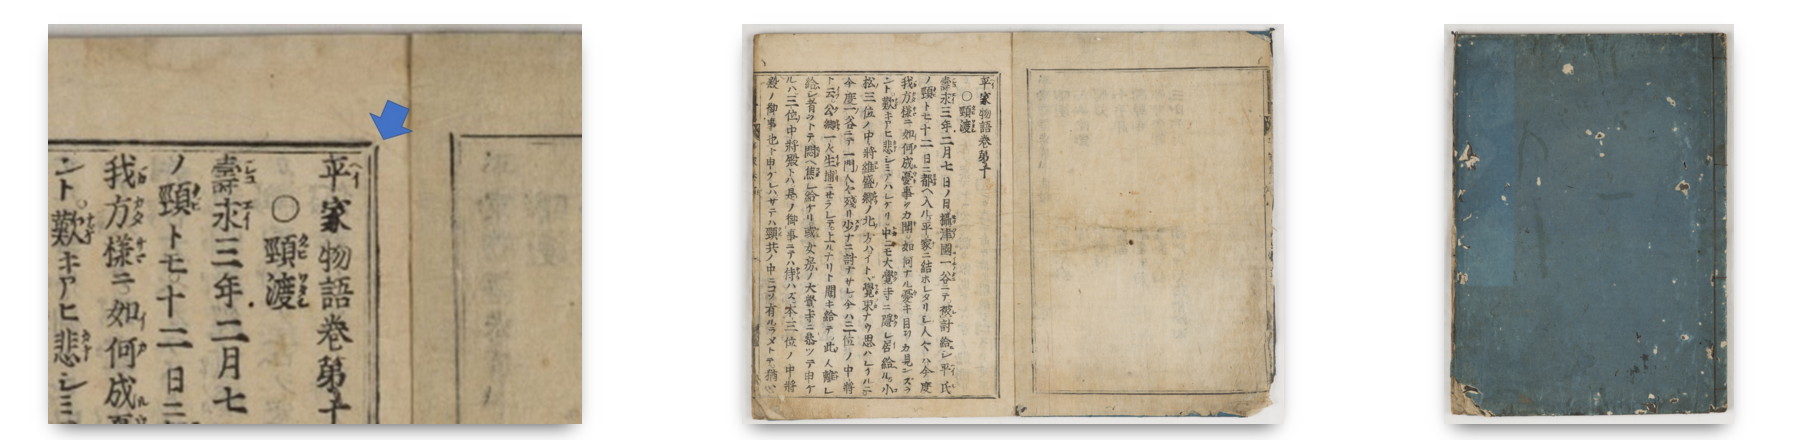 平家物語巻第十
○頸渡
壽永三年二月七
ノ頸トモ十二日ニ
我方様ニ如何成
ント歎キアヒ悲シミ
平家物語巻第十
○頸渡
壽永三年二月七日ノ日攝津國一谷ニテ被討給シ平氏
ノ頸トモ十二日ニ都ヘ入ル平家ニ結ホレタリシ人々ハ今度
我方様ニ如何成憂事ヲカ聞如何ナル憂キ目ヲカ見ンズラ
ント歎キアヒ悲シミアハレケリ中ニモ大覺寺ニ隱レ居給ル小
松三位ノ中將維盛卿ノ北方ハイトヽ覺束ナウ思ハレケルニ
今度一谷ニテ一門人々殘リ少ナニ討ナサレ今ハ三位ノ中將
ト云公卿一人生捕ニセラレテ上ルナリト聞キ給テ此人離レ
給シ者ヲトテ悶ヘ焦レ給ケリ或女房ノ大覺寺ニ參ツテ申ケ
ルハ三位中將殿トハ是ノ御事ニテハ侍ハズ本三位ノ中將
殿ノ御事也ト申ケレハサテハ頸共ノ中ニコソ有ルラメトテ猶